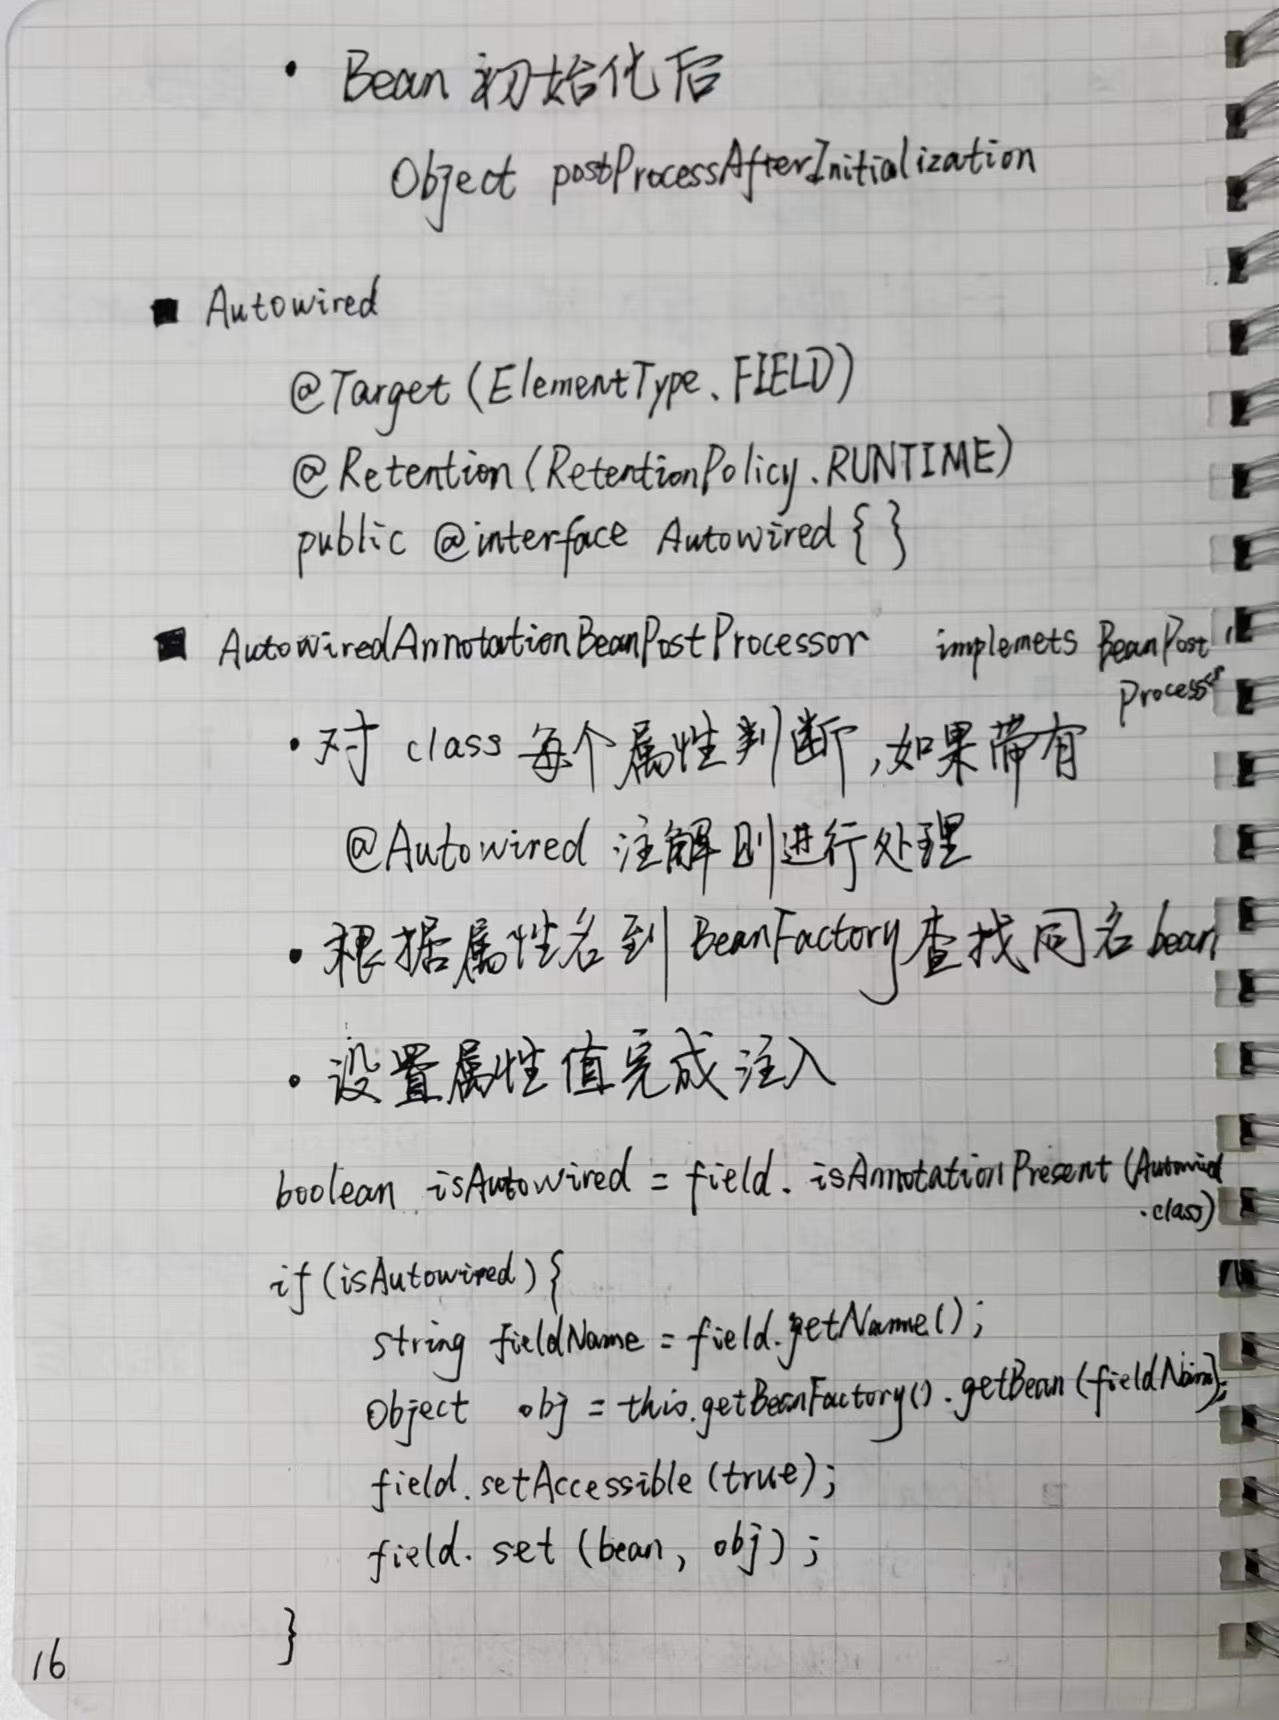 • Bean 初始化后
Object postProcessAfterInitialization
■ Autowired
@Target (ElementType.FIELD)
@Retention (RetentionPolicy.RUNTIME)
public @interface Autowired { }
■ AutowiredAnnotationBeanPostProcessor implemets BeanPost
Processor
• 对 class 每个属性判断,如果带有
@Autowired 注解则进行处理
• 根据属性名到 BeanFactory 查找同名 bean
• 设置属性值完成注入
boolean isAutowired = field. isAnnotationPresent (Autowired
.class)
if (isAutowired) {
string fieldName = field.getName();
Object obj = this.getBeanFactory().getBean (fieldName);
field.setAccessible (true);
field. set (bean, obj) ;
}
16